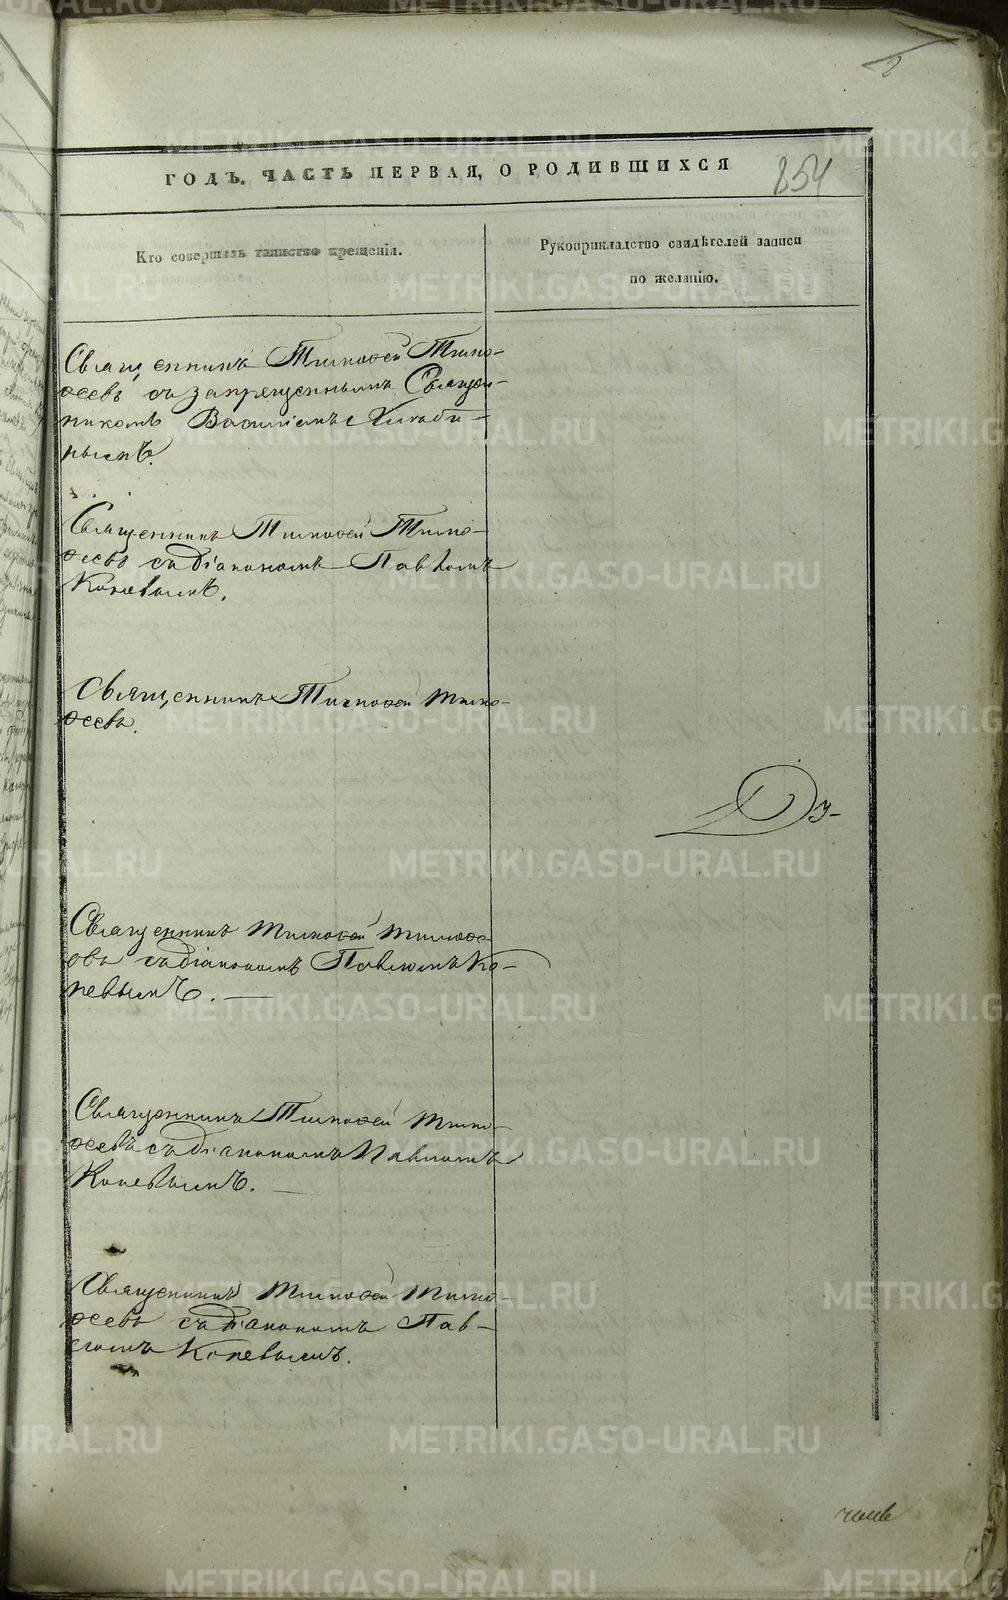 ГОДЪ. ЧАСТЬ ПЕРВАЯ, О РОДИВШИХСЯ
854
Кто совершалъ таинство крещенія.
Рукоприкладство свидѣтелей записи
по желанію.
Священникъ Тимофей Тимо-
ѳеевъ съ запрещеннымъ Священ-
никомъ Василіемъ
нымъ.
Священникъ Тимоѳей Тимо-
ѳеевъ съ діакономъ Павломъ
Коневымъ.
Священникъ Тимоѳей Тимо-
ѳеевъ.
Ду-
Священникъ Тимоѳей Тимоѳе
евъ съ діакономъ Павломъ Ко-
невымъ.
Священникъ Тимоѳей Тимо-
ѳеевъ съ діакономъ Павломъ
Коневымъ.
Священникъ Тимоѳей Тимо-
ѳеевъ съ діакономъ Пав-
ломъ Коневымъ.
METRIKI.GASO-URAL.RU